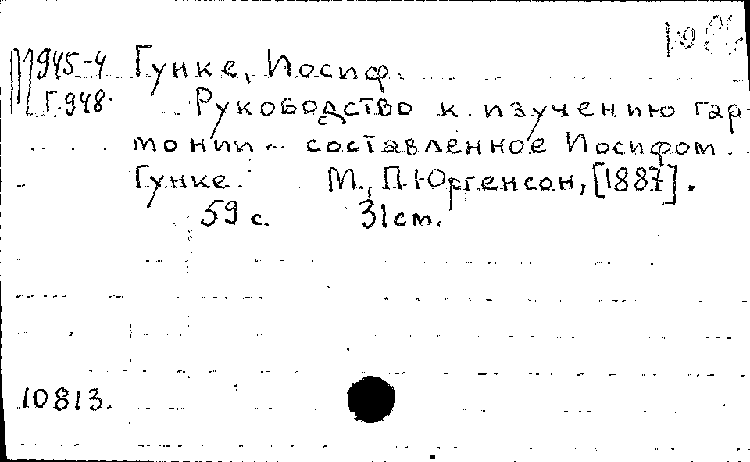 М945-4 Гунке, Иосиф.
Г.948. Руководство к изучению гар-
монии - составленное Иосифом
Гунке. М., П. Юргенсон, [1887].
59 с. 31 см.
10813.